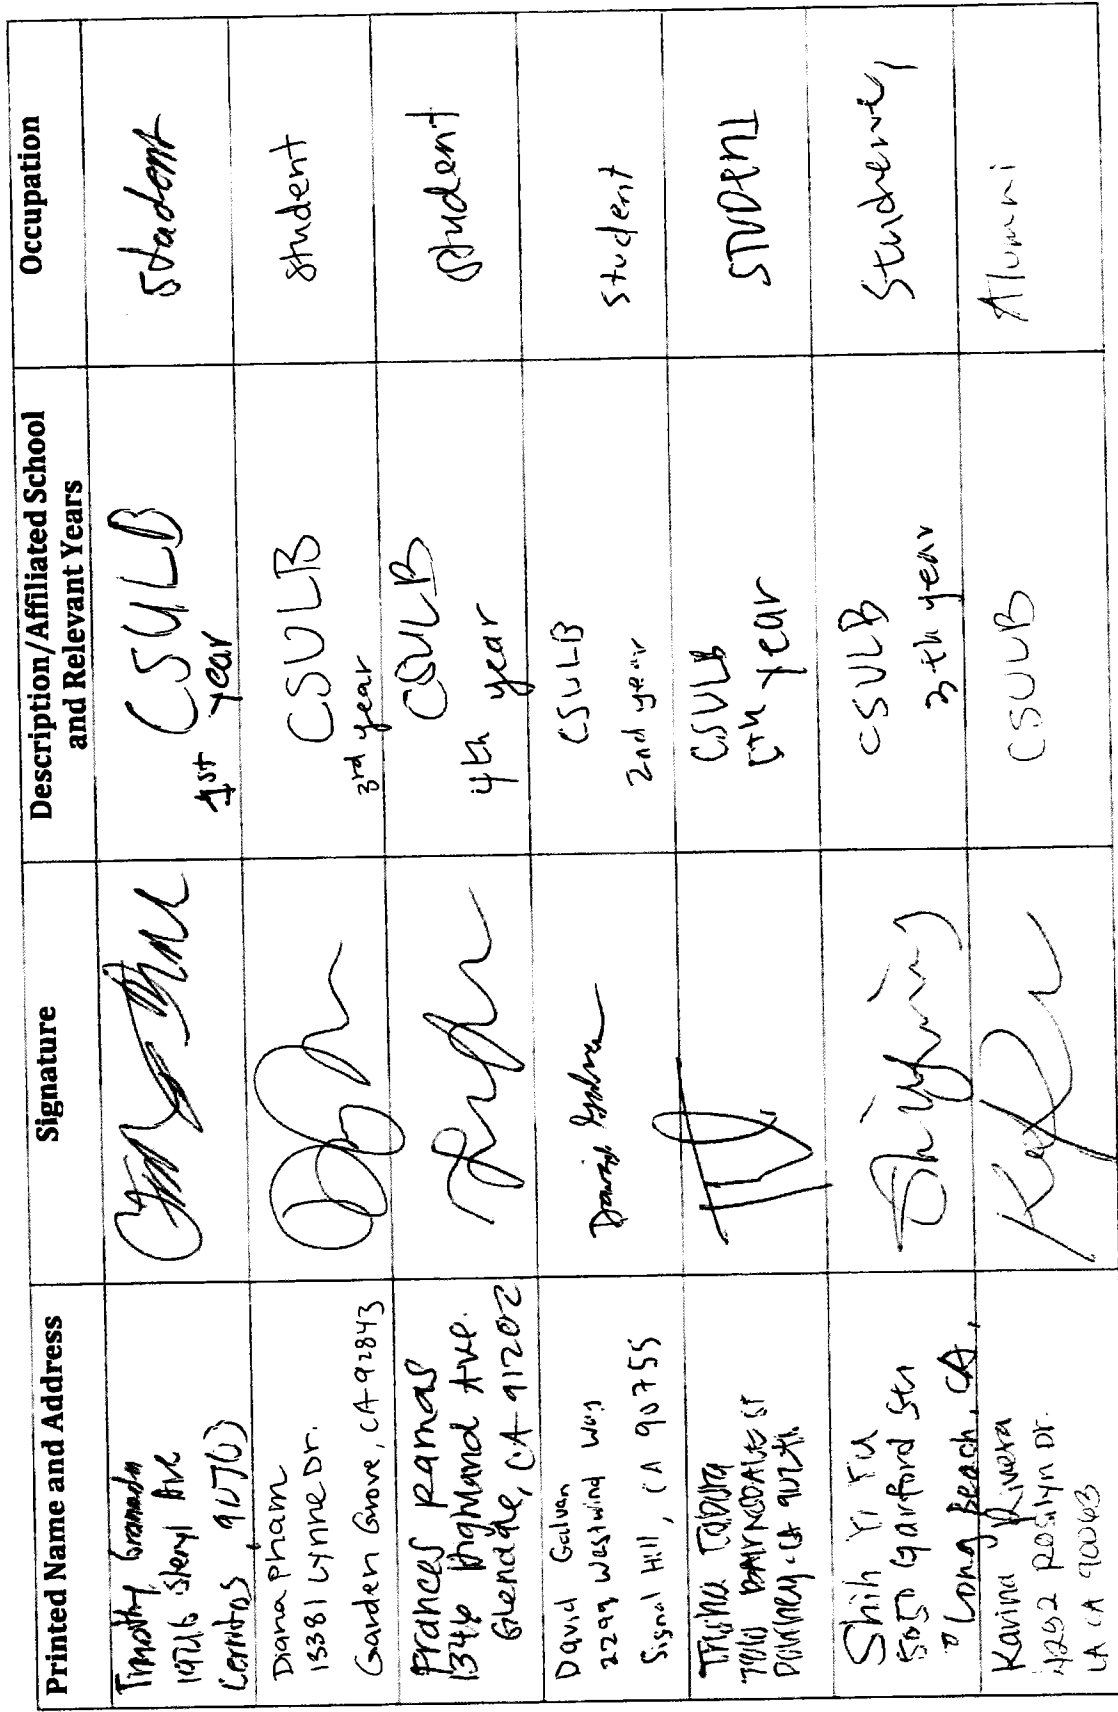 Printed Name and Address
Signature
Description/Affiliated School
and Relevant Years
Occupation
Timothy Granada
Steryl Ave
Cerritos, 90703
CSULB
1st year
student
Diana Pham
13381 Lynne Dr.
Garden Grove, CA 92843
CSULB
3rd year
student
Frances Ramas
1346 Highland Ave.
Glendale, CA 91202
CSULB
4th year
student
David Galvan
2299 Westwind Way
Signal Hill, CA 90755
David Galvan
CSULB
2nd year
student
Trisha Tabora
ST
Downey, CA
CSULB
5th year
STUDENT
Shih Yi Fu
5050 Garford St
Long Beach, CA,
CSULB
3th year
Karina Rivera
4292 Roslyn Dr.
LA CA 90063
CSULB
Alumni